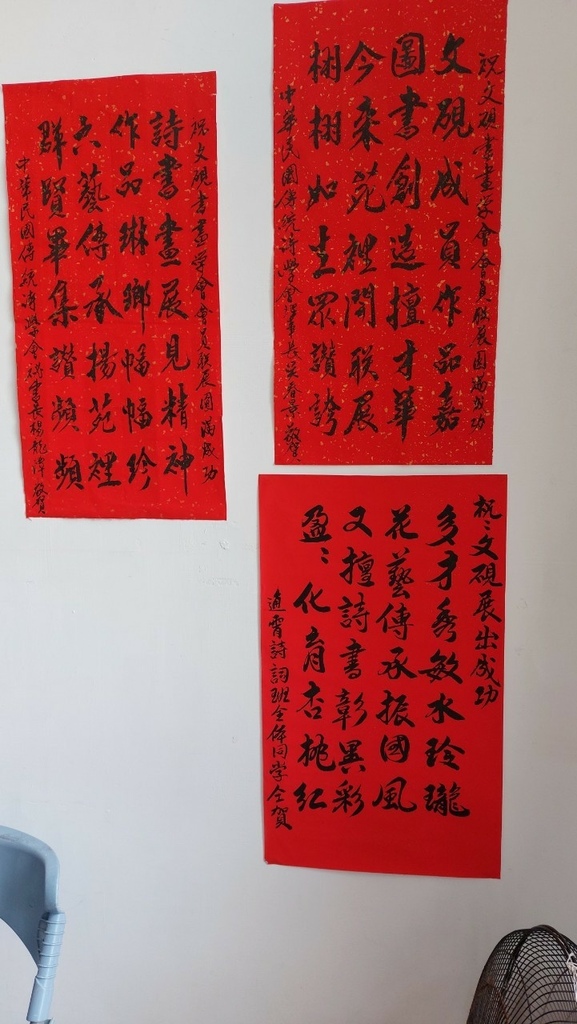 祝文硯書畫学會會員聯展圓滿成功
文硯成員作品嘉
圖書創造擅才華
今来苑裡開聯展
栩栩如生眾讚誇
中華民國傳統诗學会理事長吳春敬賀
祝文硯書畫学會會員联展圓滿成功
詩書畫展見精神
作品琳瑯幅幅珍
六藝傳承揚苑裡
群賢畢集讚頻頻
中華民國傳統诗學会祕書長楊龍潭敬賀
祝:文硯展出成功
多才秀敏水玲瓏
花藝傳承振國風
又擅詩書彰異彩
盈:化育杏桃紅
通霄詩詞班全体同学仝賀